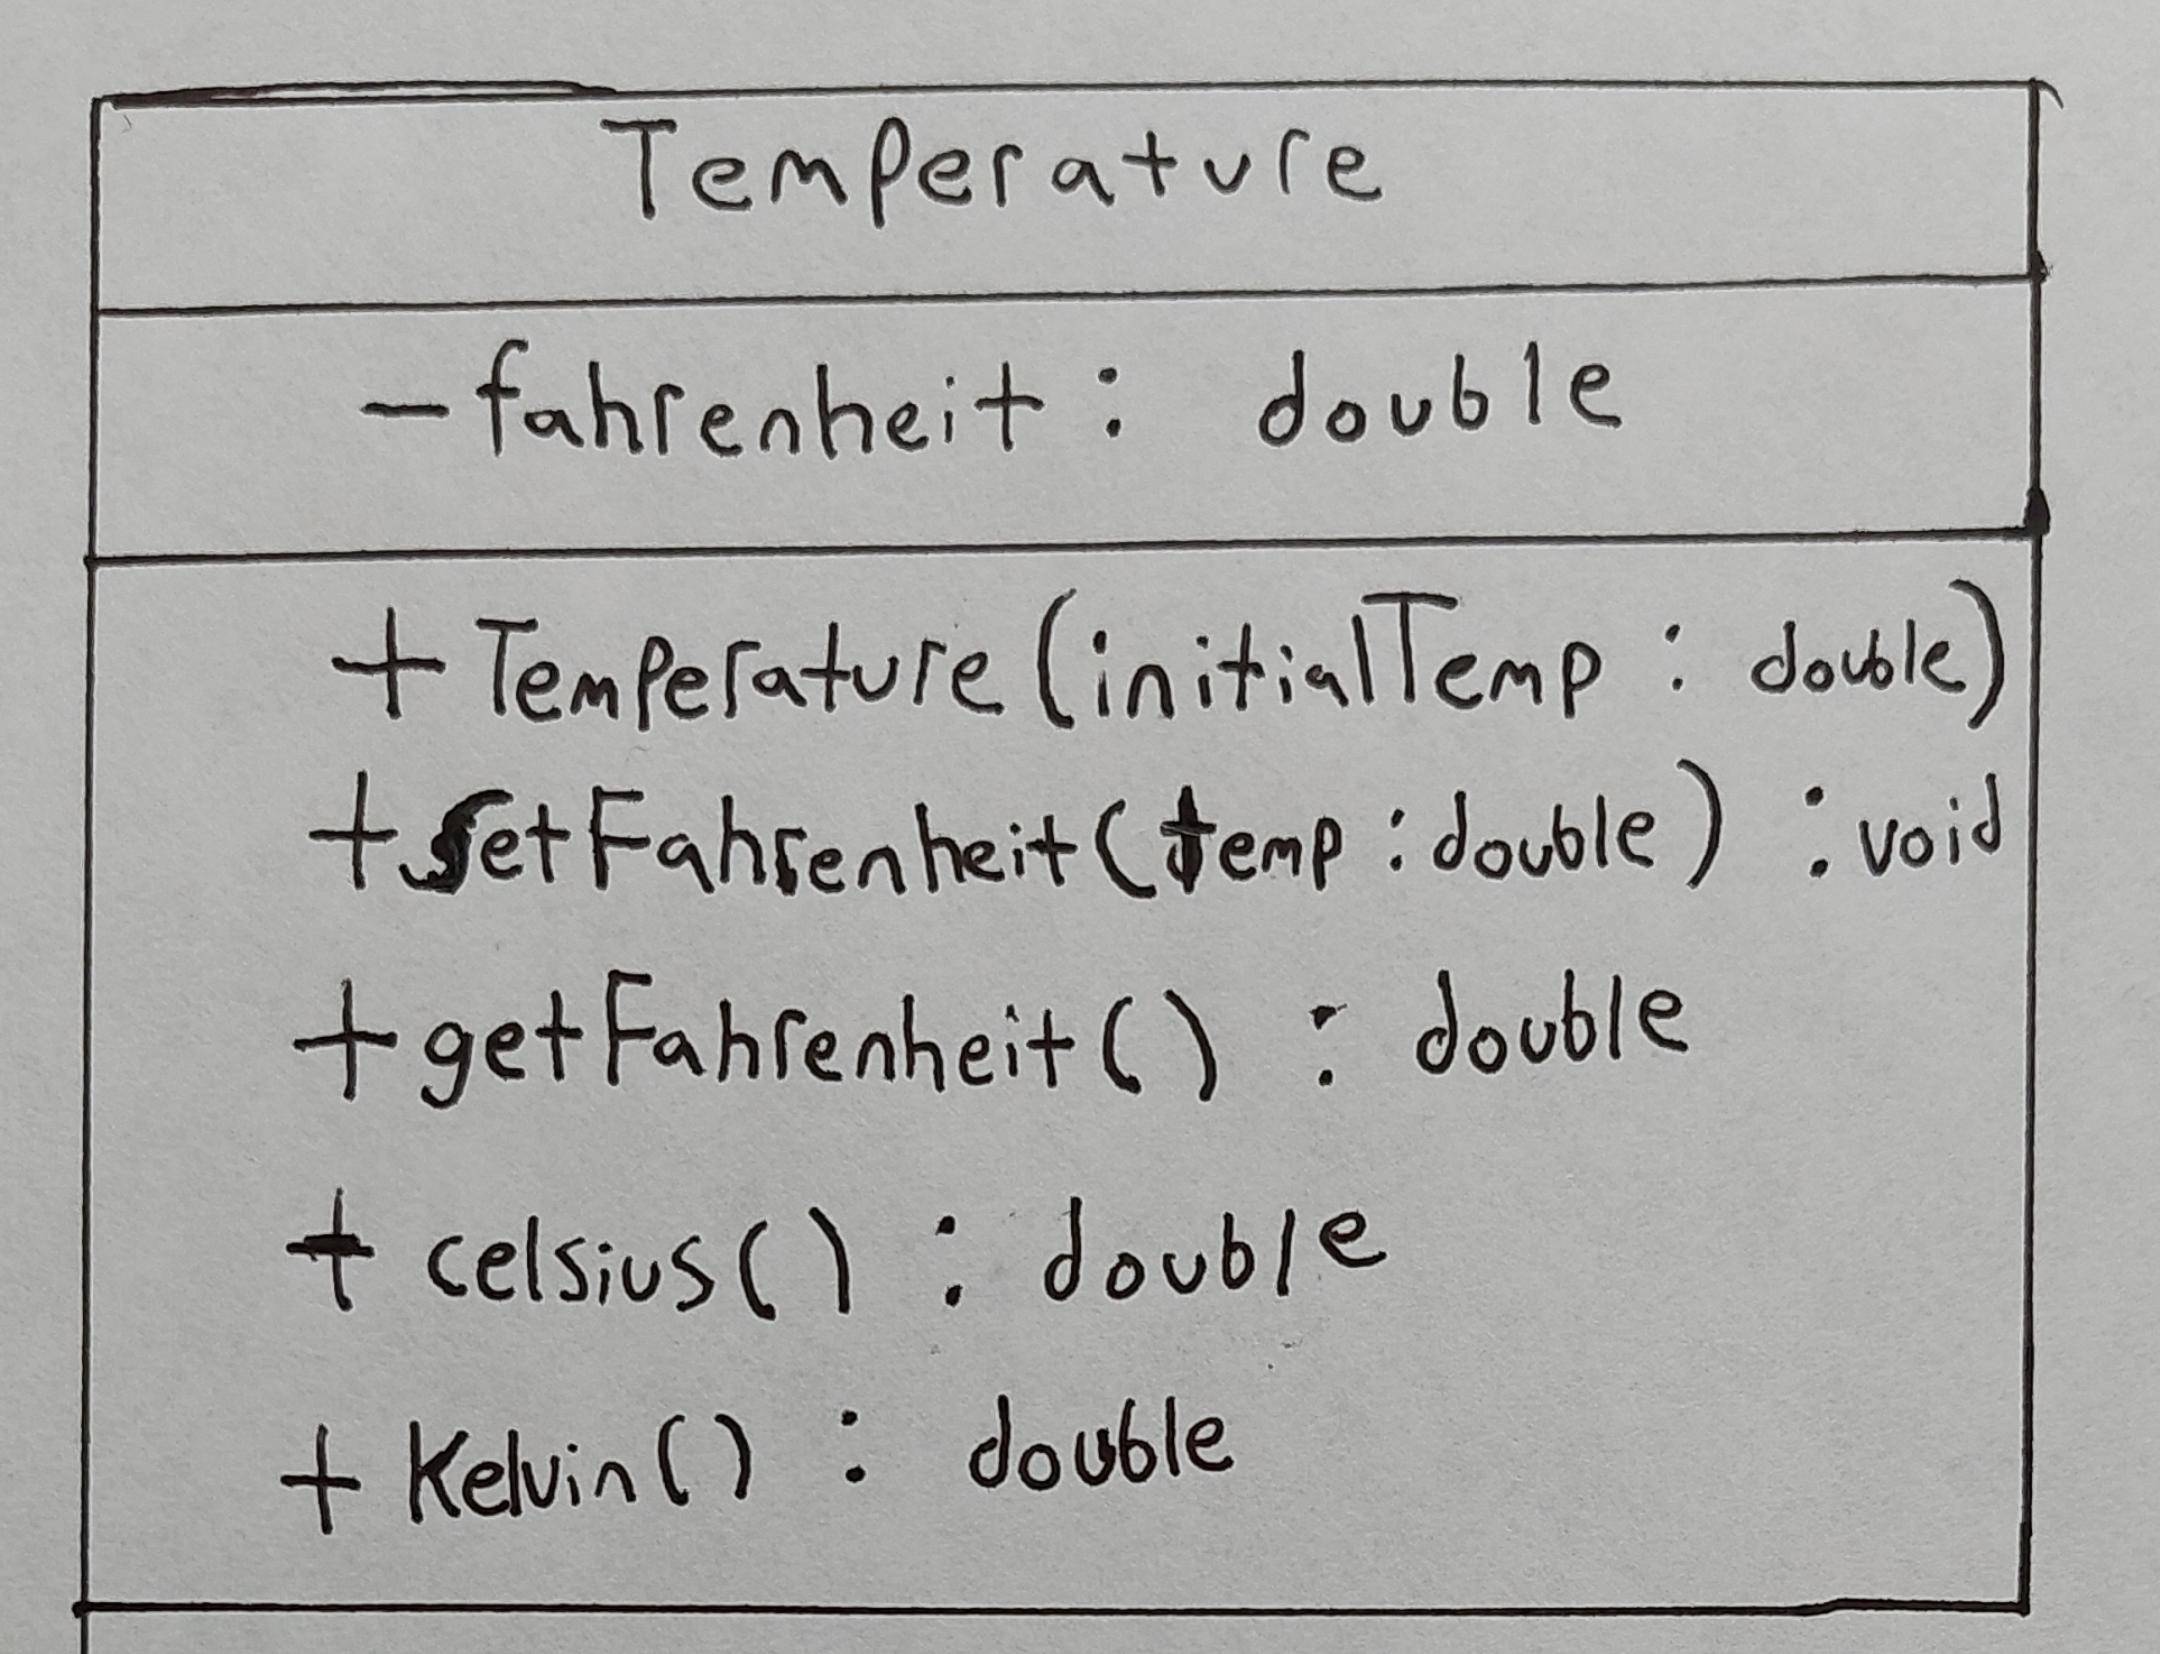 Temperature
- fahrenheit : double
+ Temperature (initialTemp : double)
+ setFahrenheit (temp : double) : void
+ getFahrenheit () : double
+ celsius () : double
+ Kelvin () : double